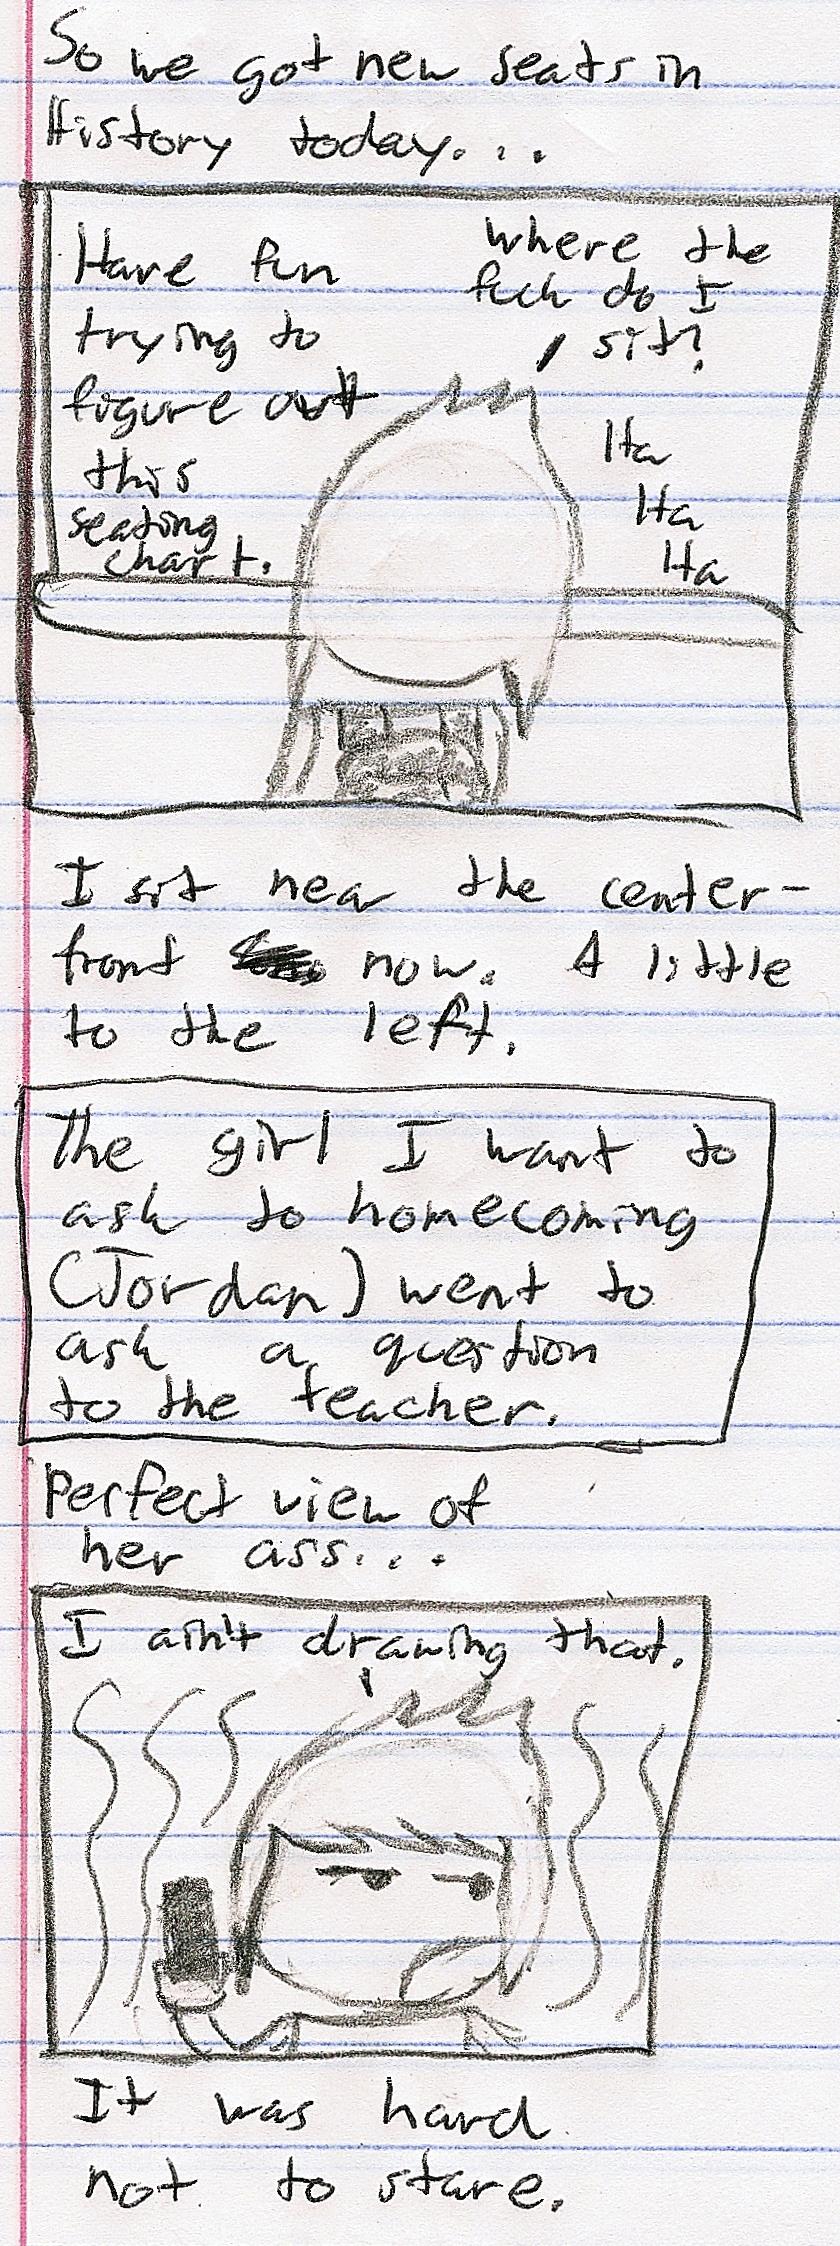 So we got new seats in
History today...
Have fun
trying to
figure out
this
seating
chart.
Where the
fuck do I
sit?
Ha
Ha
Ha
I sit near the center-
front now. A little
to the left.
The girl I want to
ask to homecoming
(Jordan) went to
ask a question
to the teacher.
Perfect view of
her ass...
I ain't drawing that.
It was hard
not to stare.